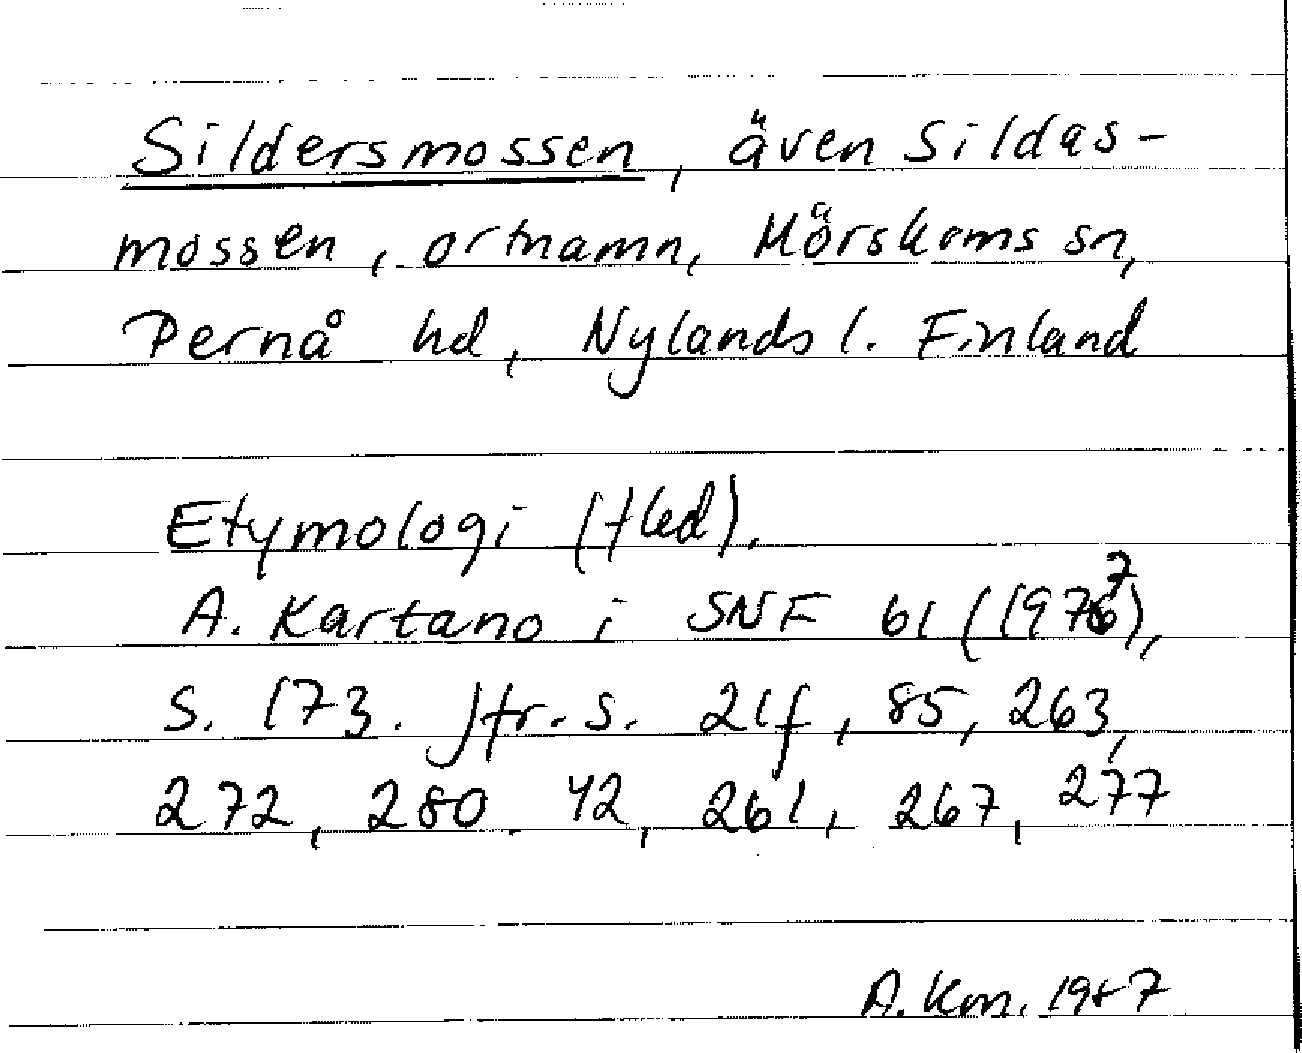 Sildersmossen, även Sildas-
mossen, ortnamn, Mörskoms sn,
Pernå hd, Nylands l. Finland
Etymologi (fled).
A. Kartano i SNF 61 (1977),
s. 173. Jfr. s. 21f, 85, 263,
272, 280. 42, 261, 267, 277
A. Km. 1987